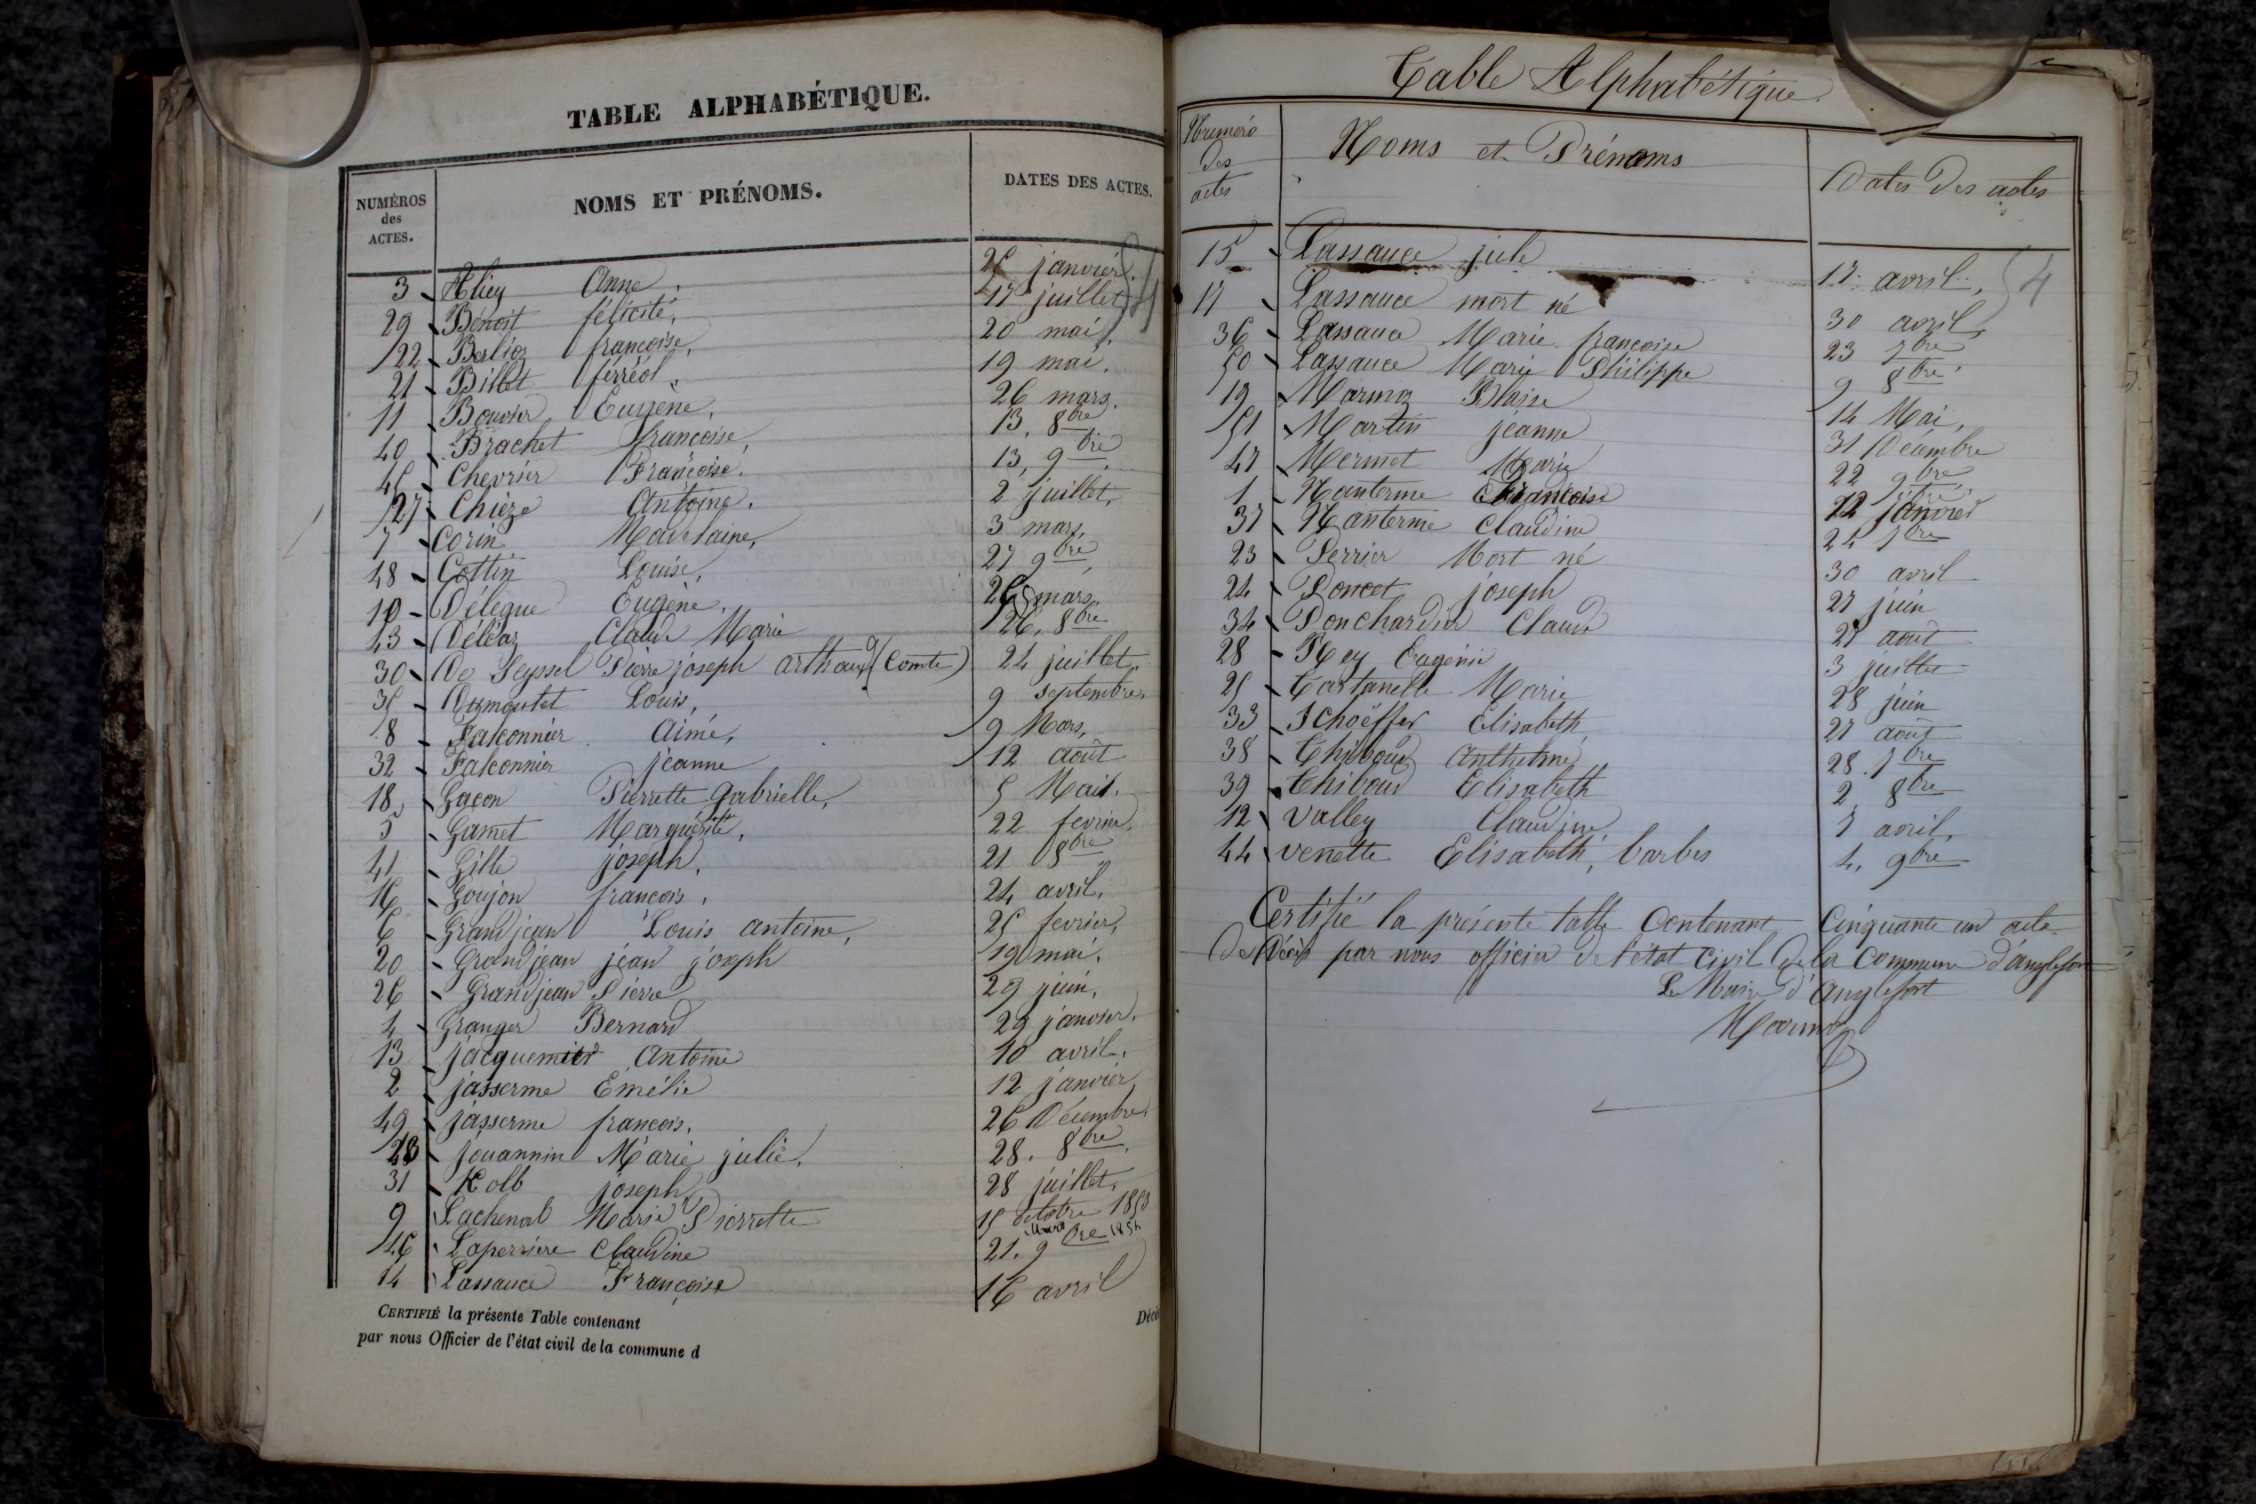 TABLE ALPHABÉTIQUE.
NUMÉROS des ACTES.
NOMS ET PRÉNOMS.
DATES DES ACTES.
3 Anne, 25 janvier.
29 Benoit félicité, 17 juillet
22 Berlioz françoise, 20 mai
21 Billet ferréol 19 mai.
11 Bouvier Eugène, 26 mars.
40 Brachet françoise, 13, 8bre
45 Chevrier Françoise. 13, 9bre
27 Chièze Antoine. 2 juillet,
7 Corin 3 mars,
48 Cottin Louise, 27 9bre
10 Délègue Eugène. mars.
43 Déléaz Claude Marie 26, 8bre
30 De Seyssel Pierre joseph arthaud (Comte) 24 juillet,
35 Dumoutet Louis, 9 septembre
8 Falconnier Aimé, 9 Mars,
32 Falconnier jeanne 12 août
18 Gacon Pierrette gabrielle, 5 Mai.
5 Gamet Marguerite, 22 fevrier,
41 Gille joseph, 21 8bre
16 Goujon françois, 24 avril,
6 Grandjean Louis antoine, 25 fevrier,
20 Grandjean jean joseph 19 mai.
26 Grandjean Pierre 29 juin,
4 Granger Bernard 29 janvier.
13 jacquemier Antoine 10 avril.
2 jasserme Emélie 12 janvier
49 jasserme françois. 26 Décembre,
jouannin Marie julie, 28. 8bre
31 Kolb joseph 28 juillet,
9 Lachenal Marie Pierrette 15 octobre 1853
46 Laperrière Claudine 21. 9bre 1854
14 Lassauce Françoise 16 avril
CERTIFIÉ la présente Table contenant
par nous Officier de l'état civil de la commune d
Table Alphabétique
Numéro des actes
Noms et Prénoms
Dates des actes
15 Lassauce jule 17 avril.
17 Lassauce mort né 30 avril,
36 Lassauce Marie françoise 23 7bre
50 Lassauce Marie Philippe 9 8bre
19 Marmoz Blaise 14 Mai,
51 Martin jeanne 31 Décembre
47 Mermet Marie 22 9bre
1 Nanterme Françoise 12 janvier
37 Nanterme Claudine 24 7bre
23 Perrier Mort né 30 avril
24 Poncet joseph 27 juin
34 Ponchardier Claude 27 août
28 Rey Eugénie 3 juillet
25 Marie 28 juin
33 Schoëffer Elisabeth 27 août
38 Thiboud Anthelme 28. 7bre
39 Thiboud Elisabeth 2, 8bre
12 Valley Claudine 7 avril,
44 venette Elisabeth, barbe 4, 9bre
Certifié la présente table Contenant Cinquante un acte
de Décès par nous officier de l'état civil de la Commune d'anglefort
Le Maire d'anglefort
Marmoz